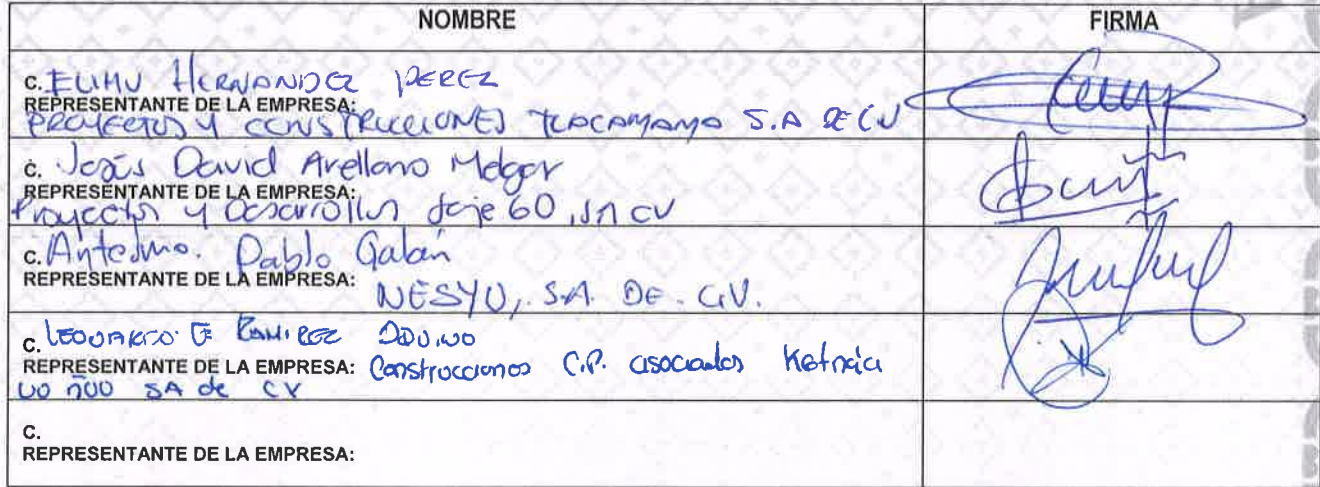 NOMBRE FIRMA
C. ELIHU HERNANDEZ PEREZ
REPRESENTANTE DE LA EMPRESA:
PROYECTOS Y CONSTRUCCIONES TLACAMAMA S.A DE CV
C. Jesús David Arellano Melgar
REPRESENTANTE DE LA EMPRESA:
Proyectos y Desarrollos 60, SA CV
C. Antelmo. Pablo Galán
REPRESENTANTE DE LA EMPRESA:
NESYU, S.A. DE. C.V.
C. LEONARDO RAMIREZ
REPRESENTANTE DE LA EMPRESA: Construcciones C.P. asociados
ÑUU SA de CV
C.
REPRESENTANTE DE LA EMPRESA: